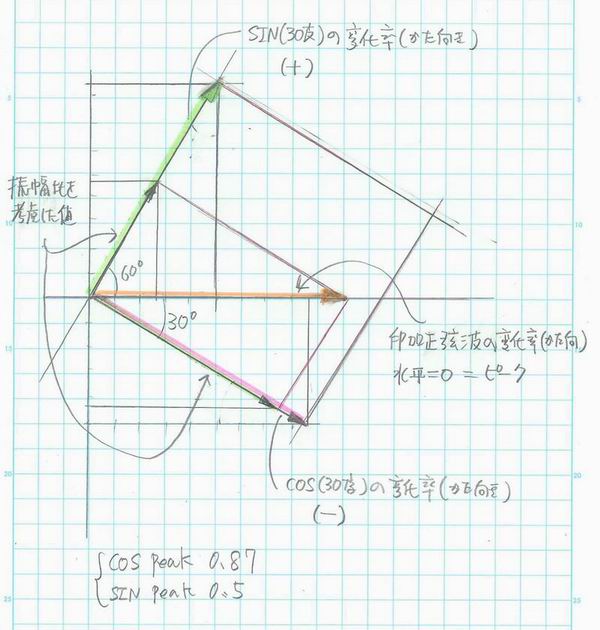 SIN(30度)の変化率(かた向き)
(+)
振幅比を
考慮した値
60°
30°
印加正弦波の変化率(かた向)
水平=0 = ピーク
COS(30度)の変化率(かた向き)
(−)
COS peak 0.87
SIN peak 0.5
5
10
15
20
25
5
10
15
20
25